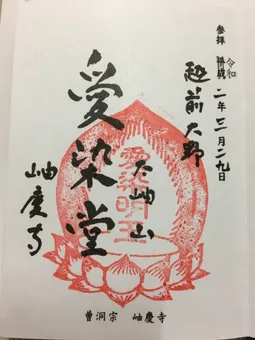 参拝 平成 令和 二年三月二九日
越前大野
愛染明王
大岫山
愛染堂
岫慶寺
曹洞宗 岫慶寺